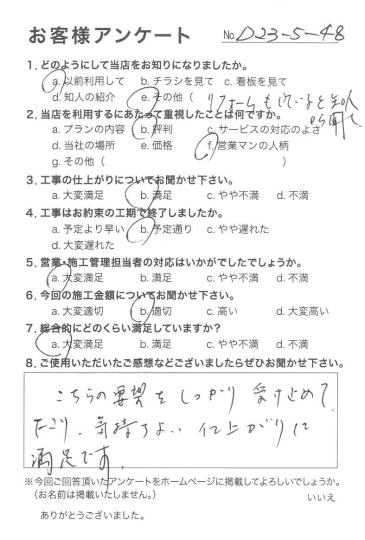 お客様アンケート No. D23-5-48
1. どのようにして当店をお知りになりましたか。
a. 以前利用して b. チラシを見て c. 看板を見て
d. 知人の紹介 e. その他( リフォームもしていると知人
から聞いて
2. 当店を利用するにあたって重視したことは何ですか。
a. プランの内容 b. 評判 c. サービスの対応のよさ
d. 当社の場所 e. 価格 f. 営業マンの人柄
g. その他( )
3. 工事の仕上がりについてお聞かせ下さい。
a. 大変満足 b. 満足 c. やや不満 d. 不満
4. 工事はお約束の工期で終了しましたか。
a. 予定より早い b. 予定通り c. やや遅れた
d. 大変遅れた
5. 営業・施工管理担当者の対応はいかがでしたでしょうか。
a. 大変満足 b. 満足 c. やや不満 d. 不満
6. 今回の施工金額についてお聞かせ下さい。
a. 大変適切 b. 適切 c. 高い d. 大変高い
7. 総合的にどのくらい満足していますか?
a. 大変満足 b. 満足 c. やや不満 d. 不満
8. ご使用いただいたご感想などございましたらぜひお聞かせ下さい。
こちらの要望をしっかり受け止めて
下さり、気持ちよい仕上がりに
満足です。
※今回ご回答頂いたアンケートをホームページに掲載してよろしいでしょうか。
(お名前は掲載いたしません。) いいえ
ありがとうございました。